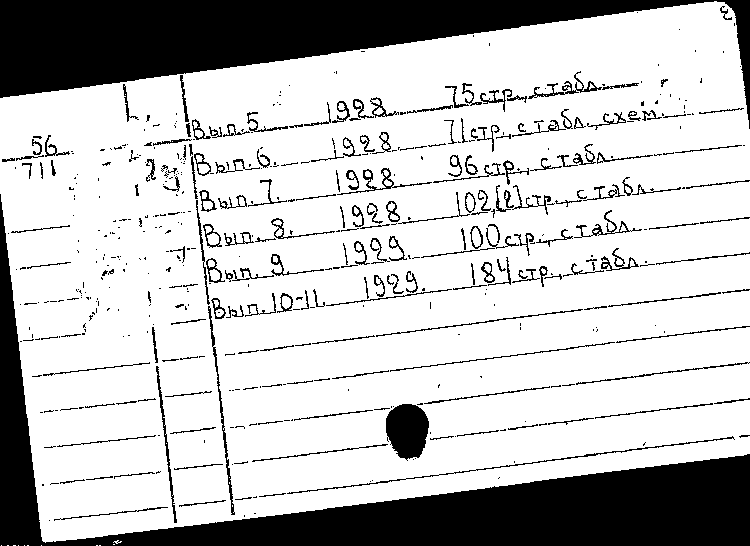 2
Вып. 5. 1928. 75 стр., с табл.
56
711
Вып. 6. 1928. 71 стр., с табл., схем.
Вып. 7. 1928. 96 стр., с табл.
Вып. 8. 1928. 102,[2] стр., с табл.
Вып. 9. 1929. 100 стр., с табл.
Вып. 10-11. 1929. 184 стр., с табл.